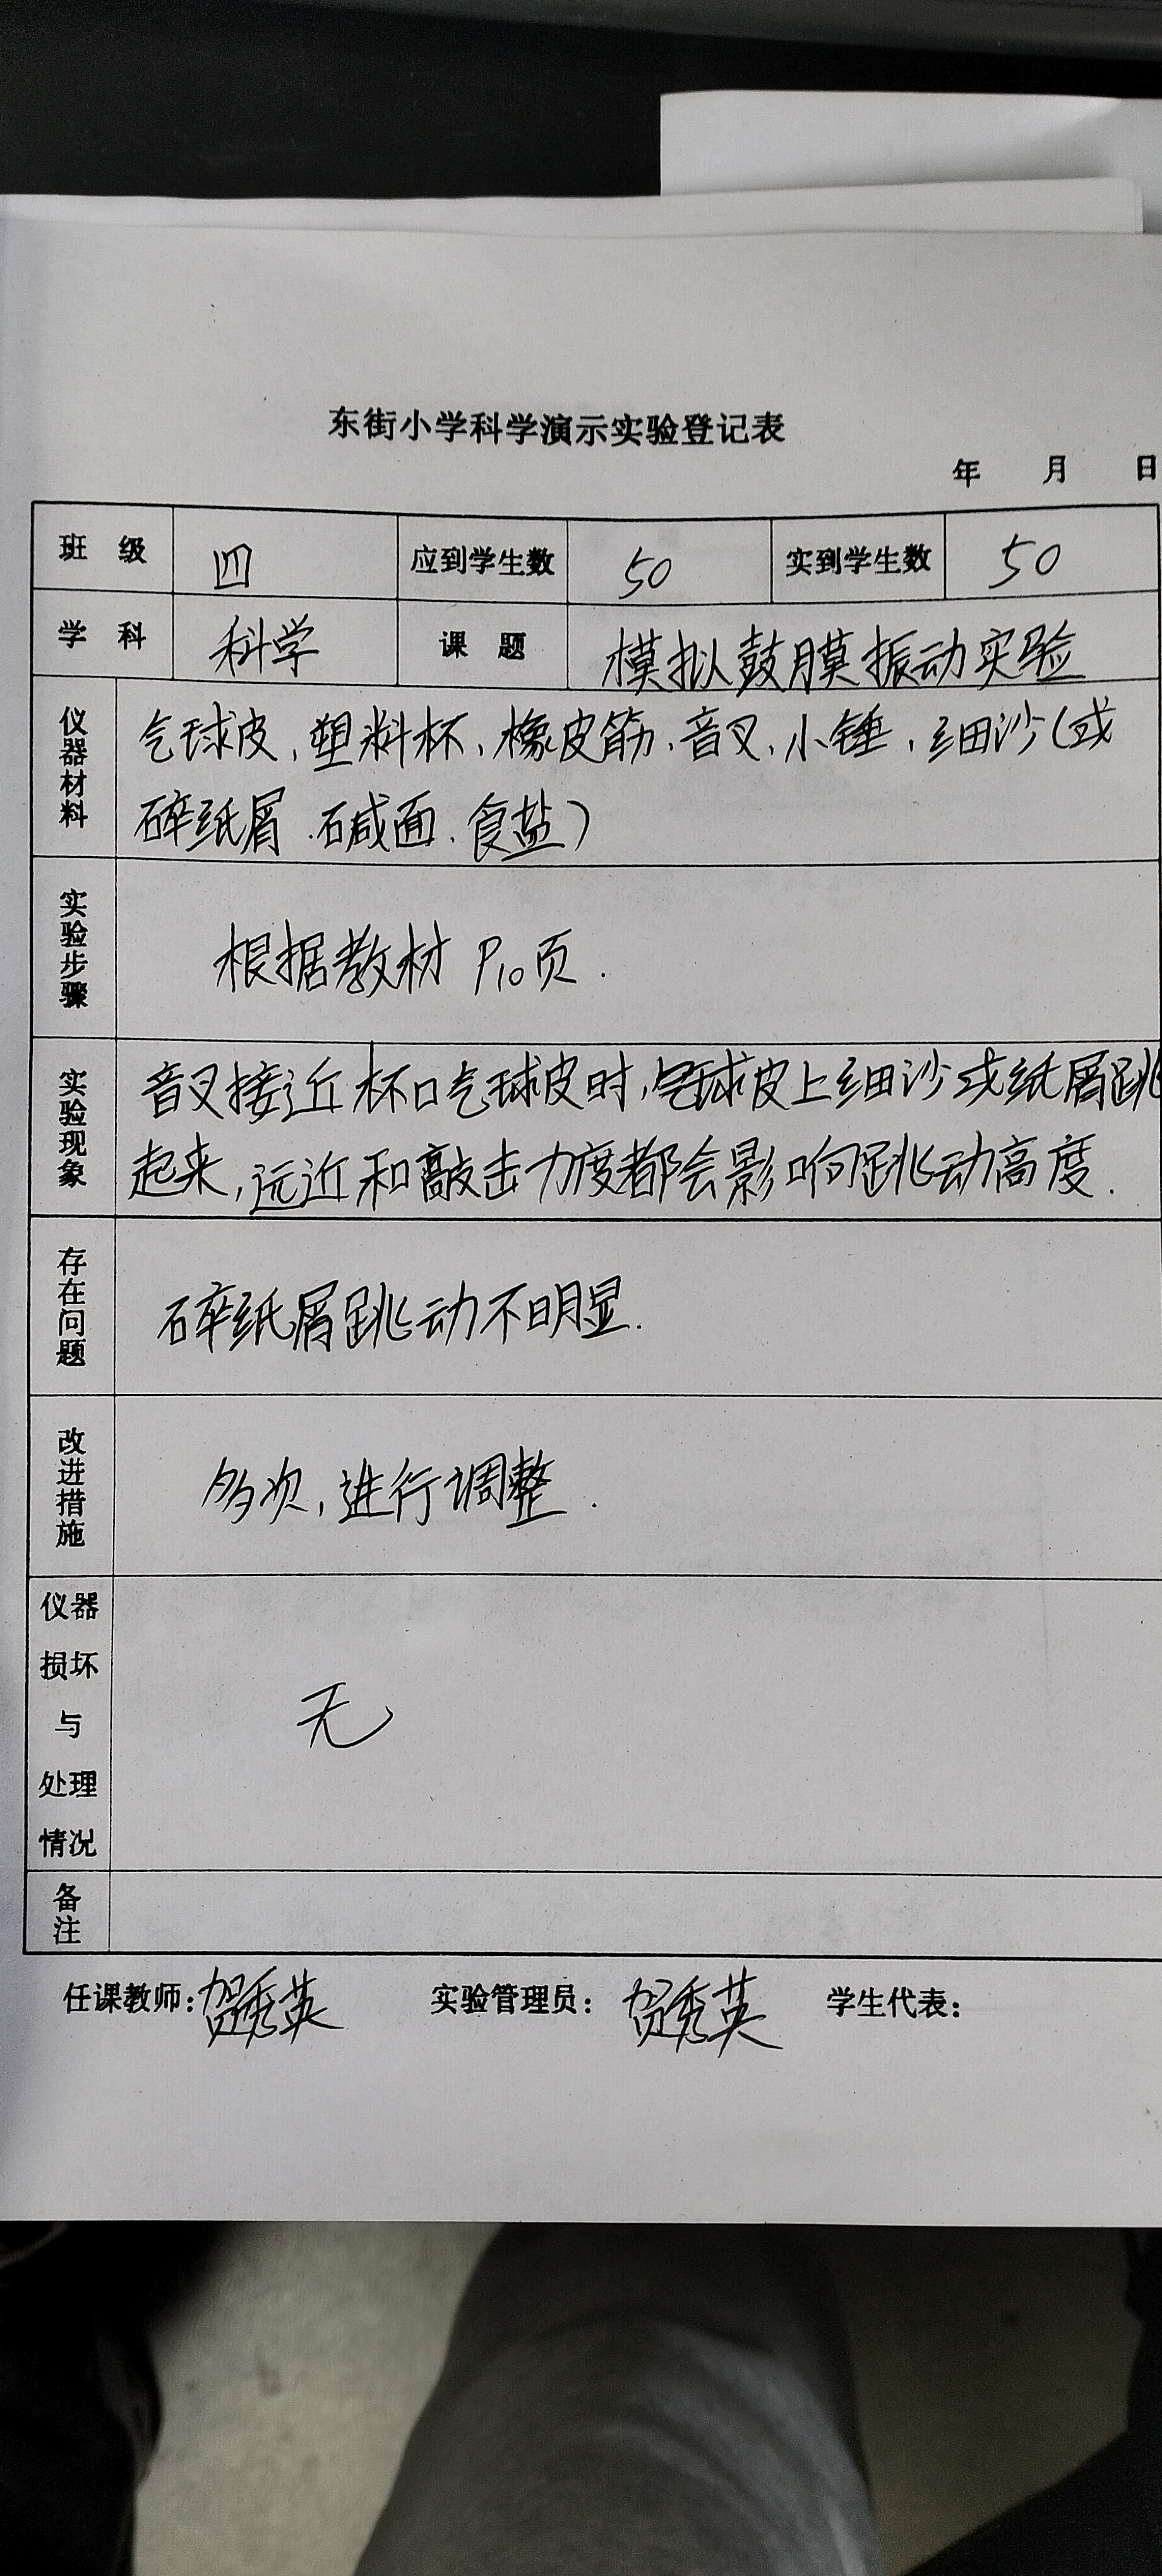 东街小学科学演示实验登记表
年 月 日
班 级 四 应到学生数 50 实到学生数 50
学 科 科学 课 题 模拟鼓膜振动实验
仪器材料 气球皮、塑料杯、橡皮筋、音叉、小锤、细沙(或
碎纸屑、碱面、食盐)
实验步骤 根据教材 P10页.
实验现象 音叉接近杯口气球皮时,气球皮上细沙或纸屑跳
起来,远近和敲击力度都会影响跳动高度.
存在问题 碎纸屑跳动不明显.
改进措施 多次,进行调整.
仪器
损坏
与
处理
情况
无
备注
任课教师:贺秀英 实验管理员:贺秀英 学生代表: